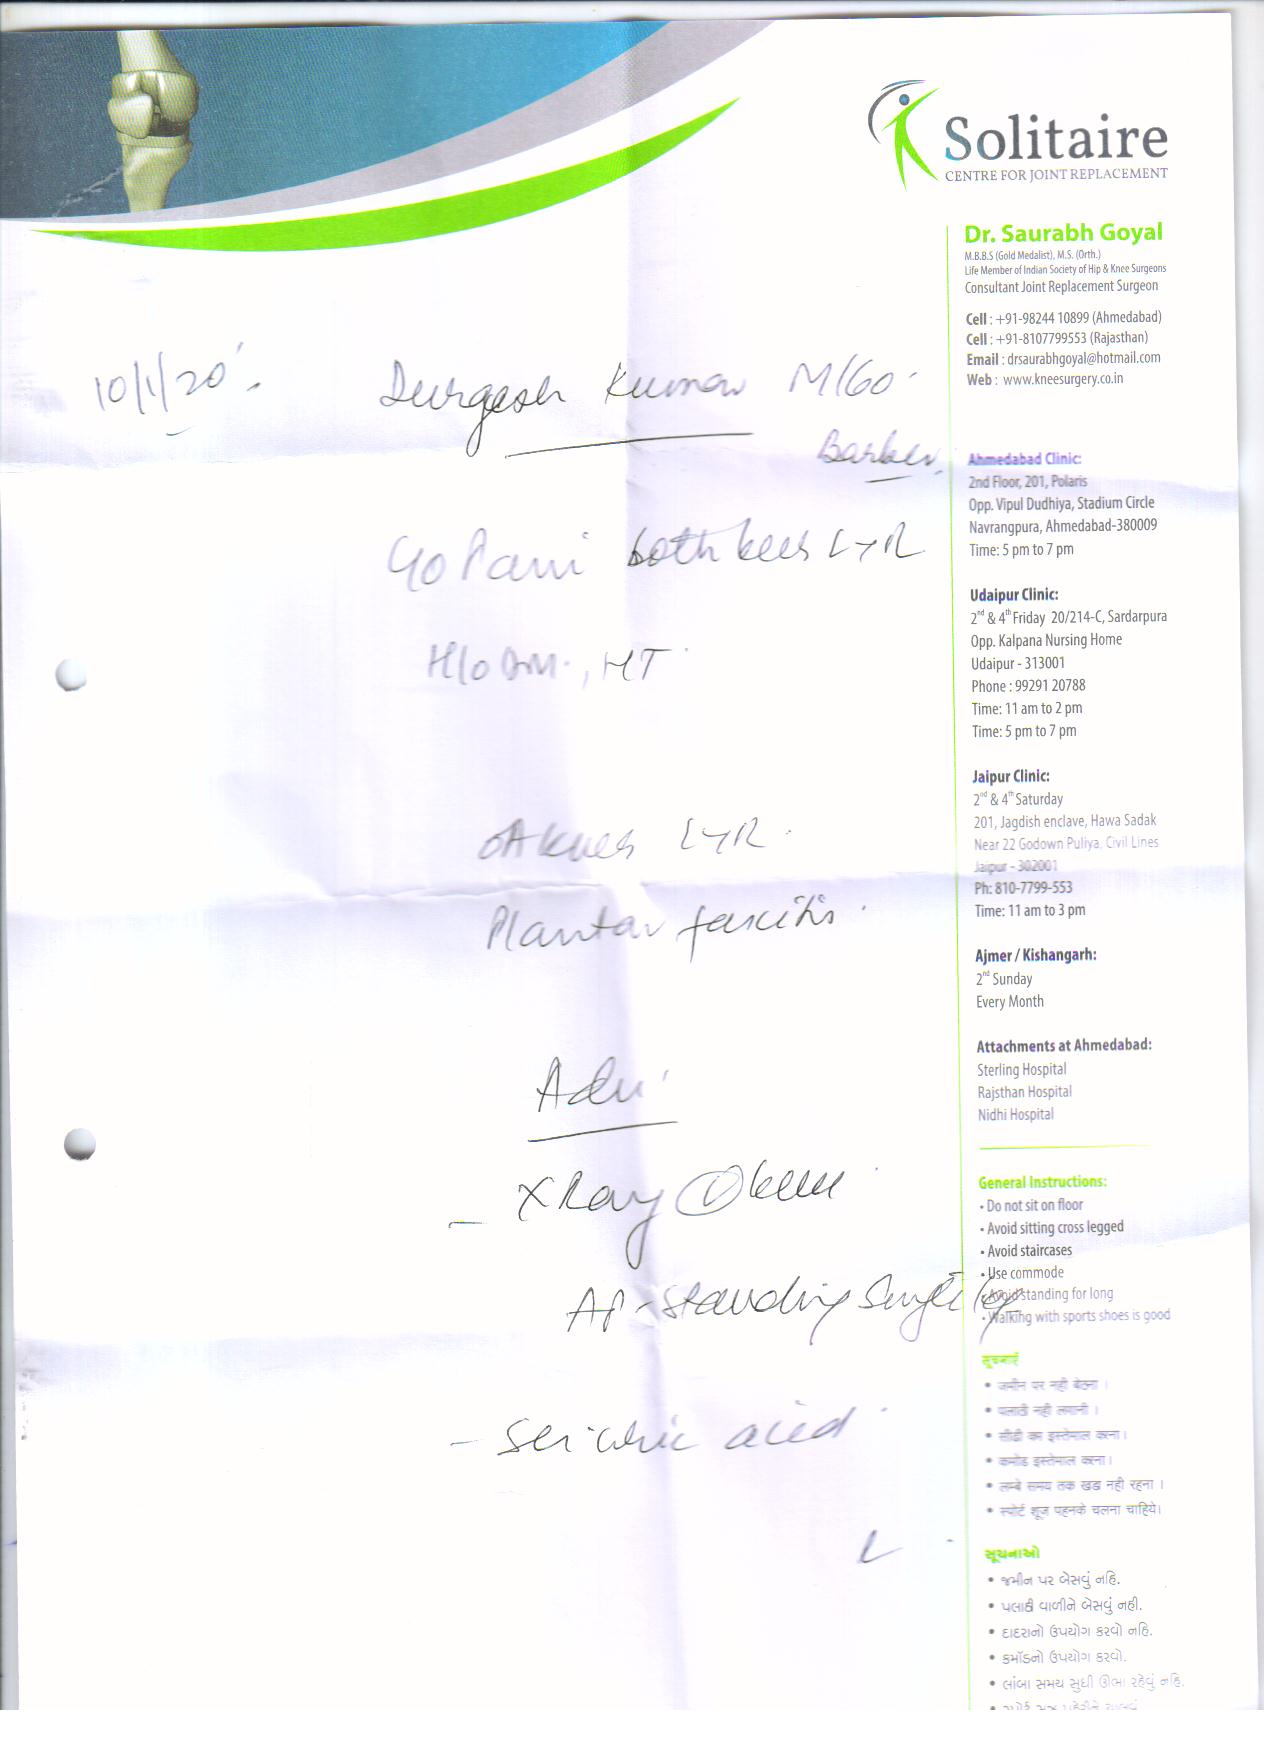 Solitaire
CENTRE FOR JOINT REPLACEMENT
Dr. Saurabh Goyal
M.B.B.S (Gold Medalist), M.S. (Orth.)
Life Member of Indian Society of Hip & Knee Surgeons
Consultant Joint Replacement Surgeon
Cell : +91-98244 10899 (Ahmedabad)
Cell : +91-8107799553 (Rajasthan)
Email : drsaurabhgoyal@hotmail.com
Web : www.kneesurgery.co.in
10/1/20
Durgesh Kumar M/60
Barber
Ahmedabad Clinic:
2nd Floor, 201, Polaris
Opp. Vipul Dudhiya, Stadium Circle
Navrangpura, Ahmedabad-380009
Time: 5 pm to 7 pm
C/o Pain both knees L>R
H/o DM, HT
OA knees L>R
Plantar fascitis
Adv
- X Ray knee
AP - standing Single leg
- Ser. uric acid
Udaipur Clinic:
2nd & 4th Friday 20/214-C, Sardarpura
Opp. Kalpana Nursing Home
Udaipur - 313001
Phone : 99291 20788
Time: 11 am to 2 pm
Time: 5 pm to 7 pm
Jaipur Clinic:
2nd & 4th Saturday
201, Jagdish enclave, Hawa Sadak
Near 22 Godown Puliya, Civil Lines
Jaipur - 302001
Ph: 810-7799-553
Time: 11 am to 3 pm
Ajmer / Kishangarh:
2nd Sunday
Every Month
Attachments at Ahmedabad:
Sterling Hospital
Rajsthan Hospital
Nidhi Hospital
General Instructions:
• Do not sit on floor
• Avoid sitting cross legged
• Avoid staircases
• Use commode
• Avoid standing for long
• Walking with sports shoes is good
सूचनाएं
• जमीन पर नही बेठना ।
• पलाठी नही लगानी ।
• सीढी का इस्तेमाल करना।
• कमोड इस्तेमाल करना।
• लम्बे समय तक खड नही रहना ।
• स्पोर्ट शूज पहनके चलना चाहिये।
સૂચનાઓ
• જમીન પર બેસવું નહિ.
• પલાઠી વાળીને બેસવું નહી.
• દાદરાનો ઉપયોગ કરવો નહિ.
• કમોડનો ઉપયોગ કરવો.
• લાંબા સમય સુધી ઊભા રહેવું નહિ.